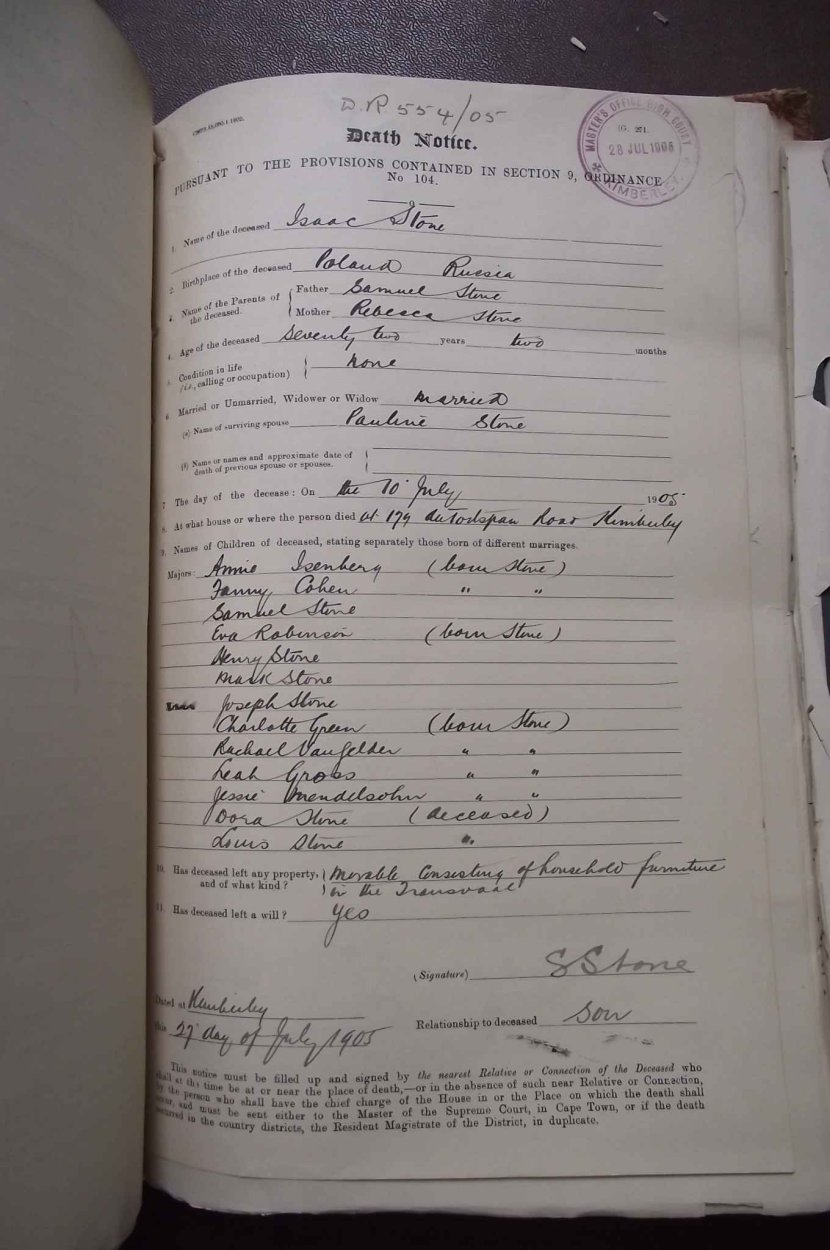 D.R 554/05
[G. 27].
MASTER'S OFFICE HIGH COURT
28 JUL 1905
KIMBERLEY.
Death Notice.
PURSUANT TO THE PROVISIONS CONTAINED IN SECTION 9, ORDINANCE
No 104.
1. Name of the deceased Isaac Stone
2. Birthplace of the deceased Poland Russia
3. Name of the Parents of the deceased. Father Samuel Stone
Mother Rebecca Stone
4. Age of the deceased Seventy two years two months
5. Condition in life (i.e., calling or occupation) None
6. Married or Unmarried, Widower or Widow Married
(a) Name of surviving spouse Pauline Stone
(b) Name or names and approximate date of
death of previous spouse or spouses.
7 The day of the decease: On the 10 July 1905
8. At what house or where the person died at 179 Road Kimberley
9. Names of Children of deceased, stating separately those born of different marriages.
Majors: Annie Isenberg (born Stone)
Fanny Cohen " "
Samuel Stone
Eva Robinson (born Stone)
Henry Stone
Mark Stone
Joseph Stone
Charlotte Green (born Stone)
Rachael Vangelder " "
Leah Gross " "
Jessie Mendelsohn " "
Dora Stone (deceased)
Louis Stone "
10. Has deceased left any property, Movable Consisting of household furniture
and of what kind? in the Transvaal
11. Has deceased left a will? Yes
(Signature) S Stone
Dated at Kimberley
this 27 day of July 1905 Relationship to deceased Son
This notice must be filled up and signed by the nearest Relative or Connection of the Deceased who
shall at the time be at or near the place of death,—or in the absence of such near Relative or Connection,
by the person who shall have the chief charge of the House in or the Place on which the death shall
occur, and must be sent either to the Master of the Supreme Court, in Cape Town, or if the death
occurred in the country districts, the Resident Magistrate of the District, in duplicate.